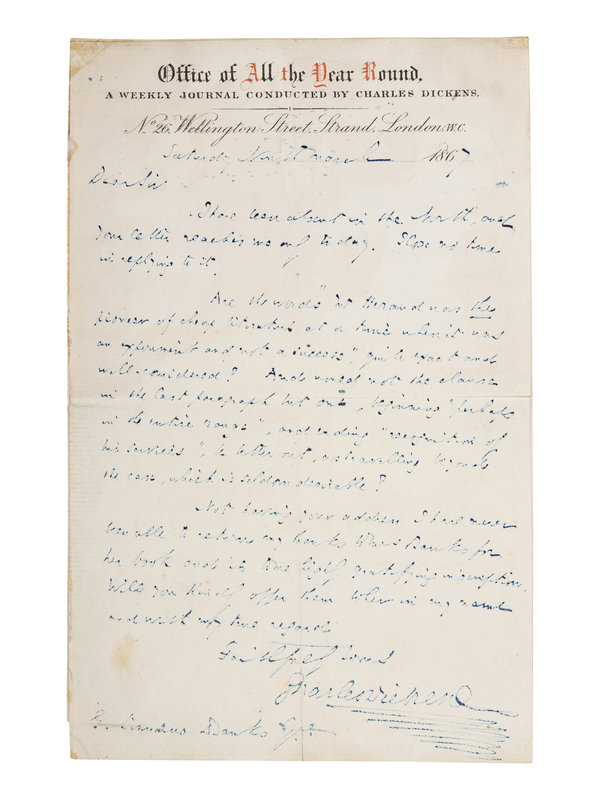 Office of All the Year Round,
A WEEKLY JOURNAL CONDUCTED BY CHARLES DICKENS.
No. 26, Wellington Street, Strand, London, W.C.
Saturday Ninth March 1867
Dear Sir
I have been about in the North, and
your letter reaches me only to day. I lose no time
in replying to it.
Are the words "it and was the
pioneer of cheap literature at a time when it was
an experiment and not a success", quite exact and
well considered? And would not the clause
in the last paragraph but one, beginning "perhaps
in the entire range", and ending "recognition of
his services", be better out, as travelling beyond
the case, which is seldom desirable?
Not having your address I have never
been able to return my thanks to Mrs Banks for
her book and its most highly gratifying inscription.
Will you kindly offer them to her in my name
and with my true regard
Faithfully Yours
Charles Dickens
G. Linnæus Banks Esqre